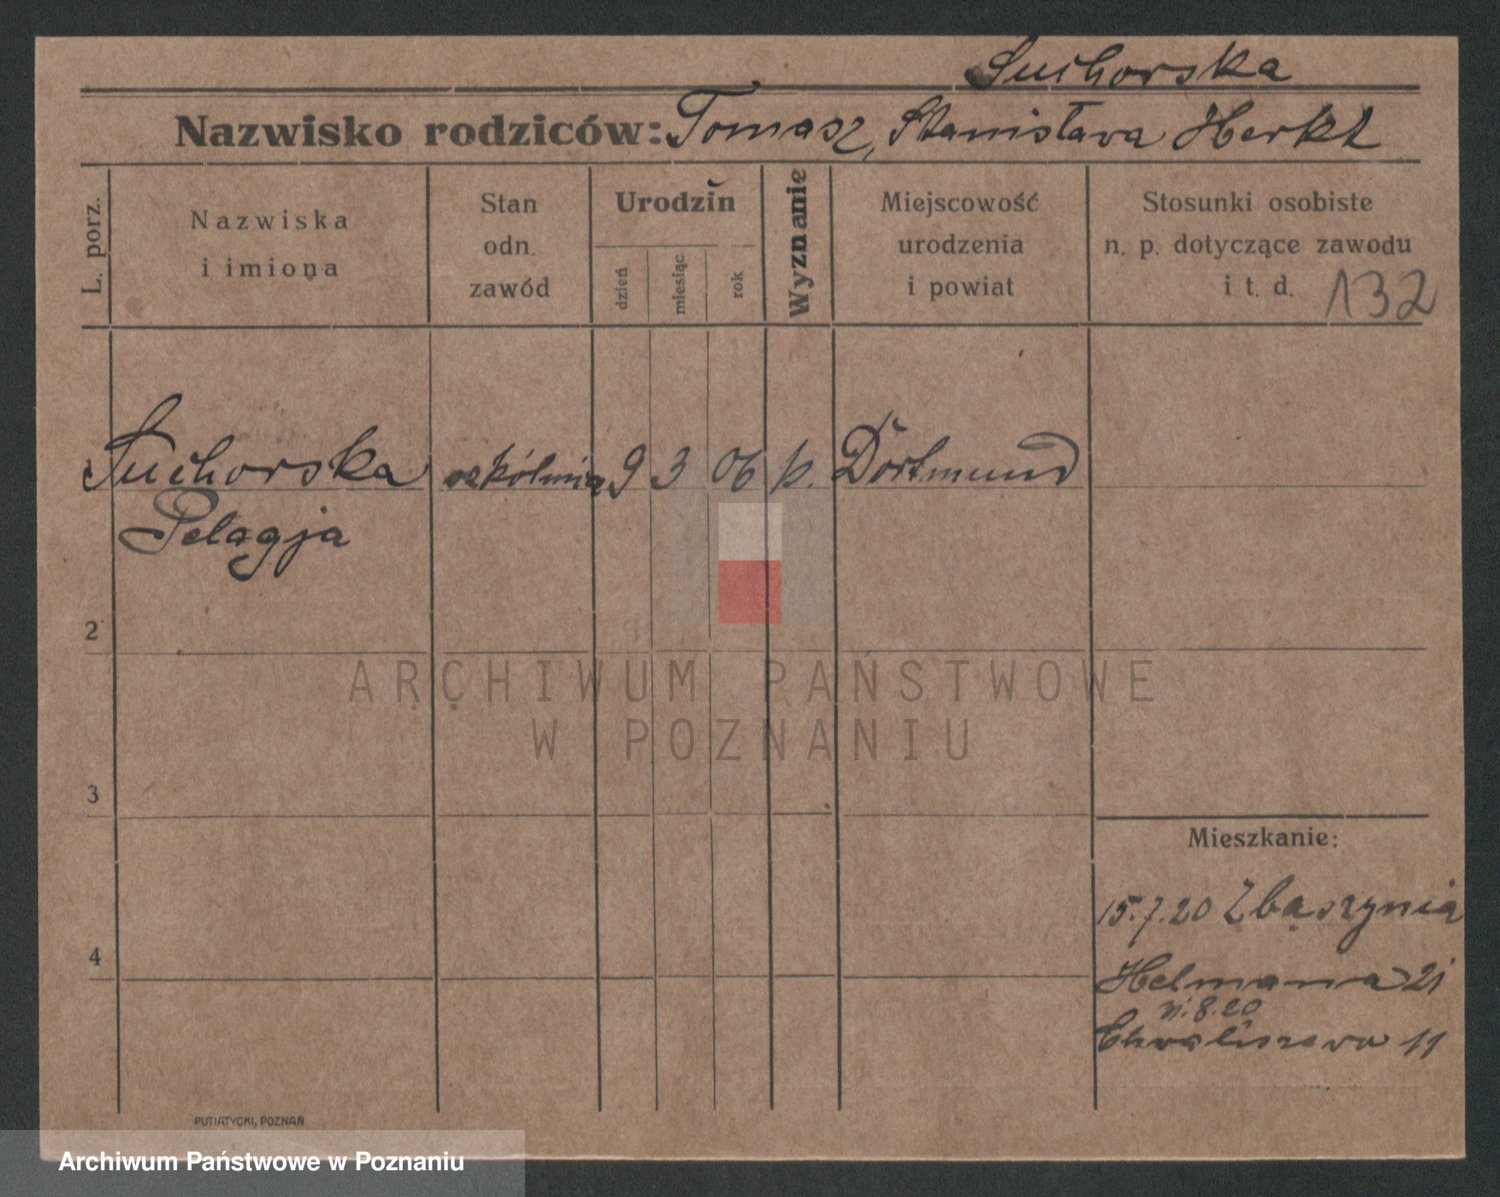 Suchorska
Nazwisko rodziców: Tomasz, Stanisława Herkt
L. porz.
Nazwiska
i imiona
Stan
odn.
zawód
Urodzin
dzień
miesiąc
rok
Wyznanie
Miejscowość
urodzenia
i powiat
Stosunki osobiste
n. p. dotyczące zawodu
i t. d. 132
Suchorska szkólnia 9 3 06 k. Dortmund
Pelagja
2
3
4
Mieszkanie:
15.7.20 Zbąszynia
Helmana 21
8.20
Chwaliszewo 11
PUTIATYCKI, POZNAŃ
ARCHIWUM PAŃSTWOWE
W POZNANIU
Archiwum Państwowe w Poznaniu